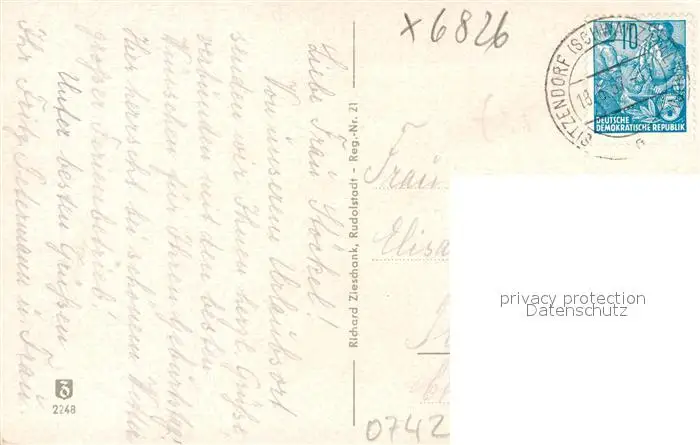 Liebe Frau Stöckel!
Von unserem Urlaubsort
senden wir Ihnen herzl. Grüße
verbunden mit den besten
Wünschen für Ihren Geburtstag!
Hier herrscht bei schönem Wetter
großer Ferienbetrieb!
Unter besten Grüßen
Ihr Fritz u. Frau.
2248
Richard Zieschank, Rudolstadt – Reg.-Nr. 21
x 6826
SITZENDORF (SCHWARZATAL)
18
a
10
5
DEUTSCHE
DEMOKRATISCHE REPUBLIK
Frau
Elisa
privacy protection
Datenschutz
0742